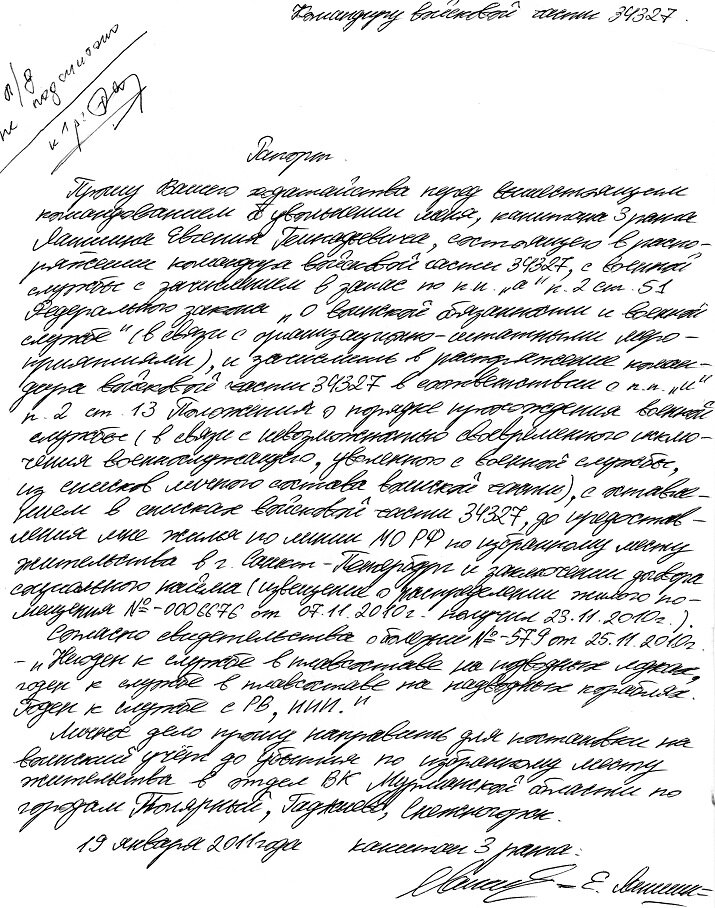 Командиру войсковой части 34327.
не подписано
к 1 р:
Рапорт.
Прошу Вашего ходатайства перед вышестоящим
командованием о увольнении меня, капитана 3 ранга
Евгения Геннадьевича, состоящего в распо-
ряжении командира войсковой части 34327, с военной
службы с зачислением в запас по п.п. „а" п.2 ст. 51
Федерального закона „О воинской обязанности и военной
службе" (в связи с организационно-штатными меро-
приятиями), и зачислить в распоряжение коман-
дира войсковой части 34327 в соответствии с п.п. „и"
п. 2 ст. 13 Положения о порядке прохождения военной
службы (в связи с невозможностью своевременного исклю-
чения военнослужащего, уволенного с военной службы,
из списков личного состава воинской части), с оставле-
нием в списках войсковой части 34327, до предостав-
ления мне жилья по линии МО РФ по избранному месту
жительства в г. Санкт-Петербург и заключении договора
социального найма (извещение о распределении жилого по-
мещения №-0006676 от 07.11.2010г. получил 23.11.2010г.).
Согласно свидетельства о болезни №-579 от 25.11.2010г.
- „Негоден к службе в плавсоставе на подводных лодках,
годен к службе в плавсоставе на надводных кораблях.
Годен к службе с РВ, ИИИ."
Личное дело прошу направить для постановки на
воинский учёт до убытия по избранному месту
жительства в отдел ВК Мурманской области по
городам Полярный, Гаджиево, Снежногорск.
19 января 2011 года капитан 3 ранга:
Е.